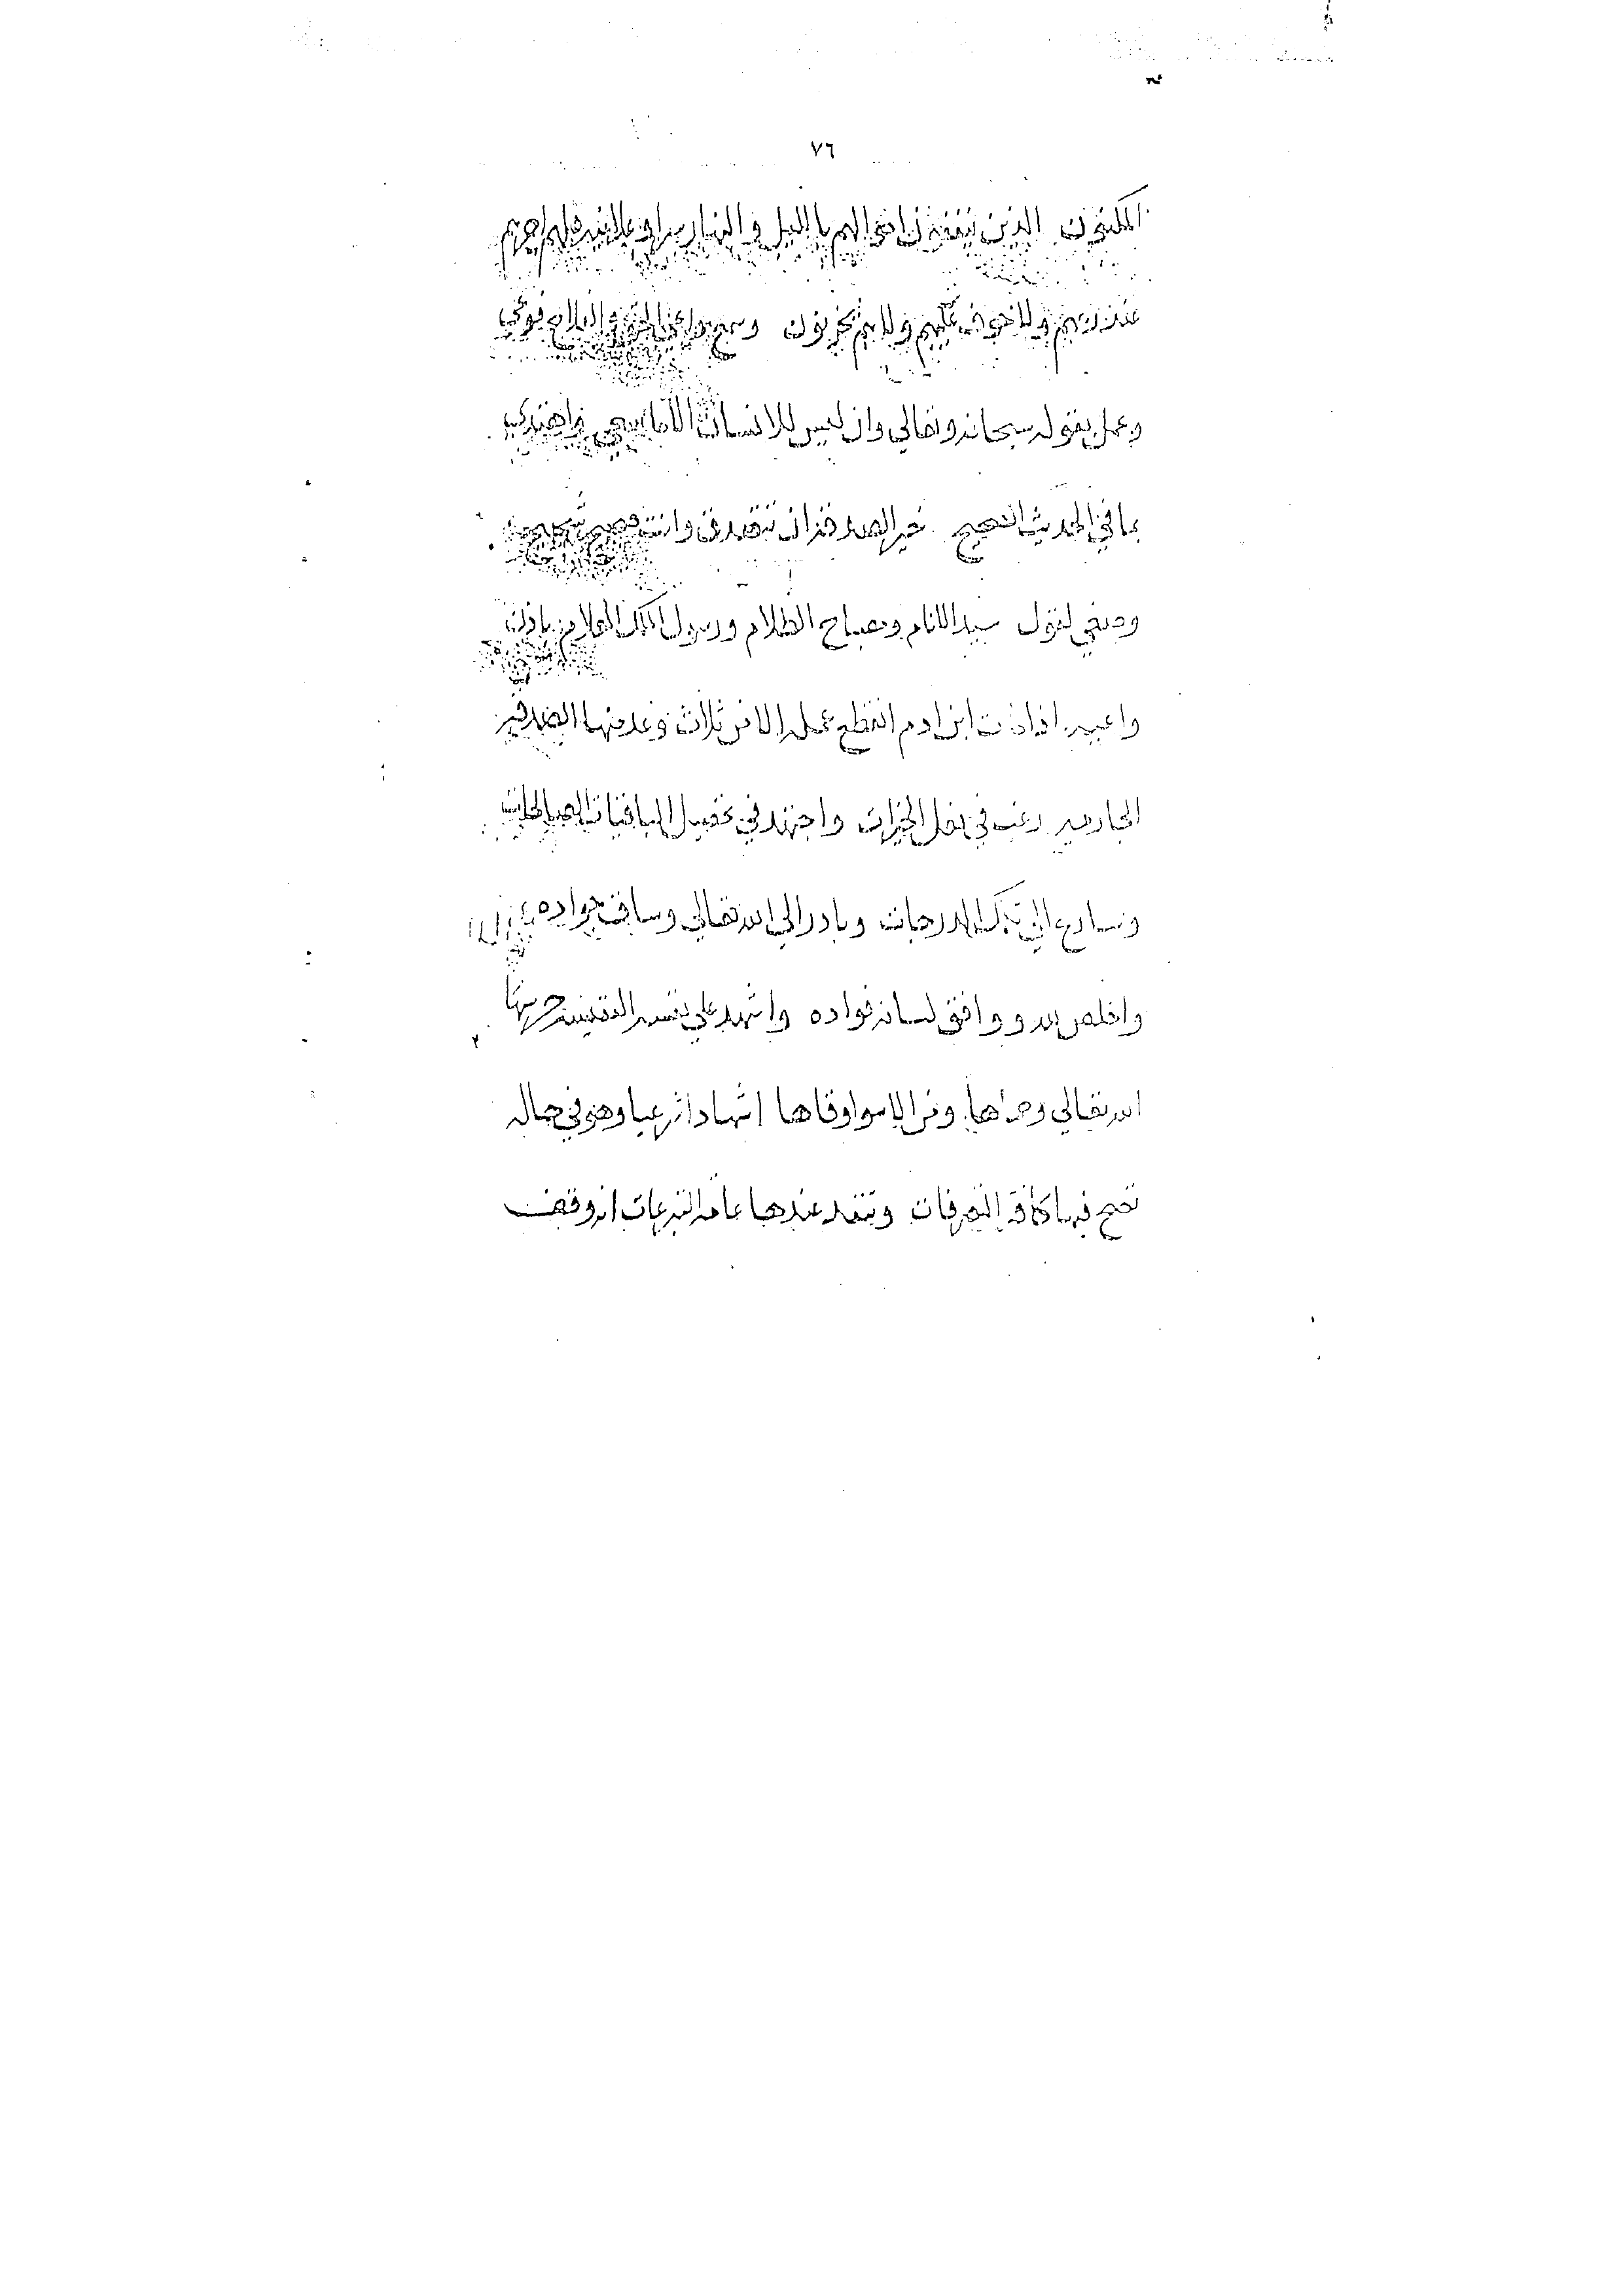 ٧٦
المكنون الذين ينفقون اموالهم بالليل والنهار سرا وعلانية فلهم اجرهم
عند ربهم ولا خوف عليهم ولا هم يحزنون وسمع داعي الخير والفلاح فوعي
وعمل بقوله سبحانه وتعالي وان ليس للانسان الا ما سعي واهتدي
بما في الحديث الصحيح خير الصدقة ان تتصدق وانت صحيح شحيح
وصغي لقول سيد الانام ومصباح الظلام ورسول الملك العلام باذن
واعيه اذا مات ابن ادم انقطع عمله الا من ثلاث وعد منها الصدقة
الجاريه رغب في فعل الخيرات واجتهد في تحصيل الباقيات الصالحات
وسارع الي تلك الدرجات وبادر الي الله تعالي وساق جواده
واخلص لله ووافق لسانه فواده واشهد علي نفسه النفيسة حرسها
الله تعالي وحماها ومن الاسوا وقاها اشهادا شرعيا وهو في حالة
تصح فيها كافة التصرفات وتنفذ عندها عامه التبرعات انه وقف